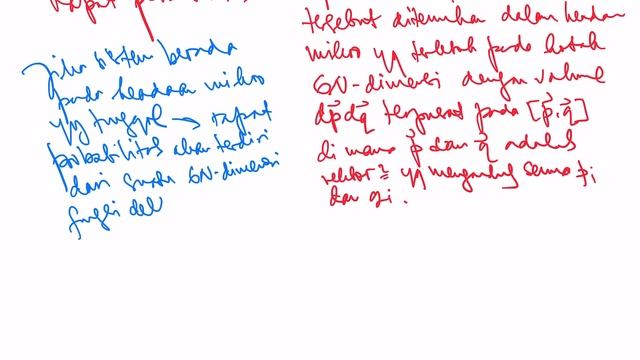 rapat
Jika sistem berada
pada keadaan mikro
yg tunggal → rapat
probabilitas akan terdiri
dari suatu 6N-dimensi
fungsi del
tersebut ditemukan dalam keadaan
mikro yg terletak pada kotak
6N-dimensi dengan volume
dp⃗ dq⃗ terpusat pada [p⃗, q⃗]
di mana p⃗ dan q⃗ adalah
vektor² yg mengandung semua pi
dan qi.